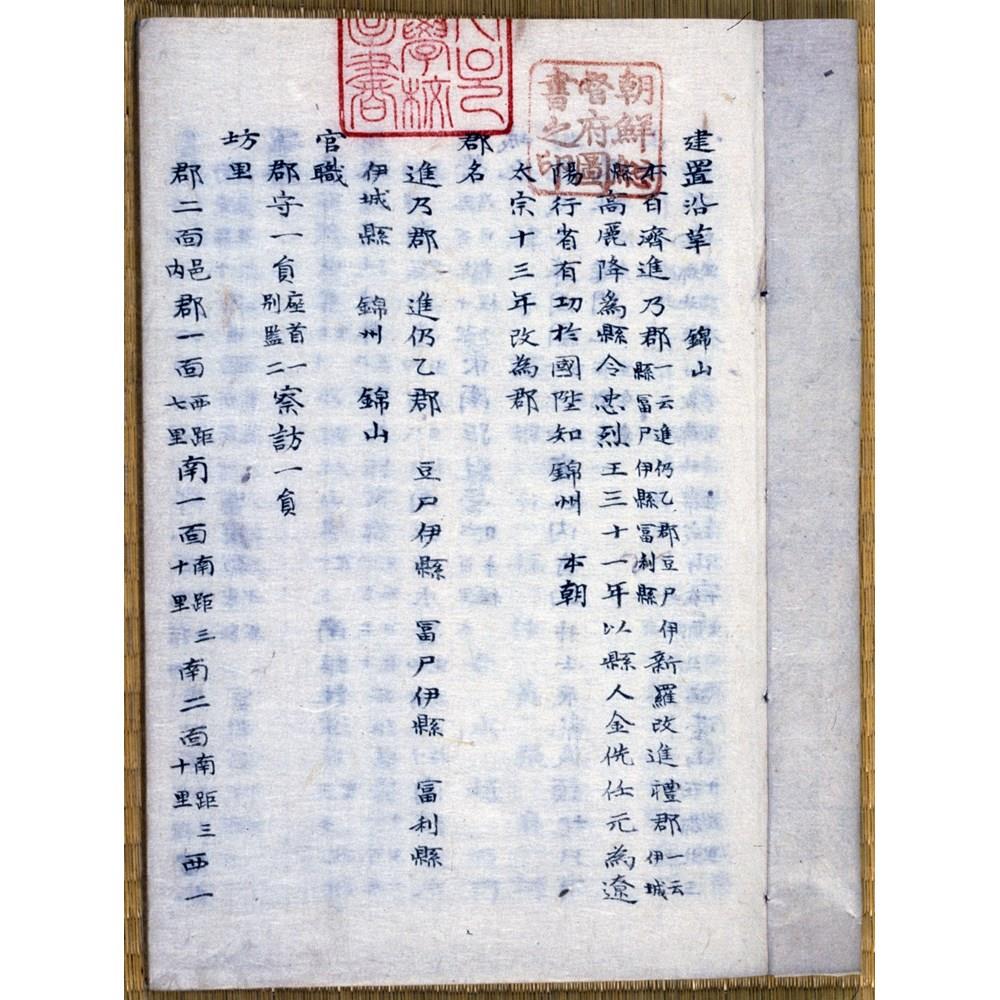 建置沿革　錦山
本百濟進乃郡一云進仍乙郡豆尸伊縣冨尸伊縣冨利縣新羅改進禮郡一云伊城
縣高麗降爲縣令忠烈王三十一年以縣人金侁任元為遼
陽行省有功於國陞知錦州　本朝
太宗十三年改為郡
郡名
進乃郡　進仍乙郡　豆尸伊縣　冨尸伊縣　富利縣
伊城縣　錦州　錦山
官職
郡守一員座首一別監二察訪一員
坊里
郡二面邑內郡一面西距七里南一面南距三十里南二面南距三十里西一
朝鮮總
督府圖
書之印
學校
圖書